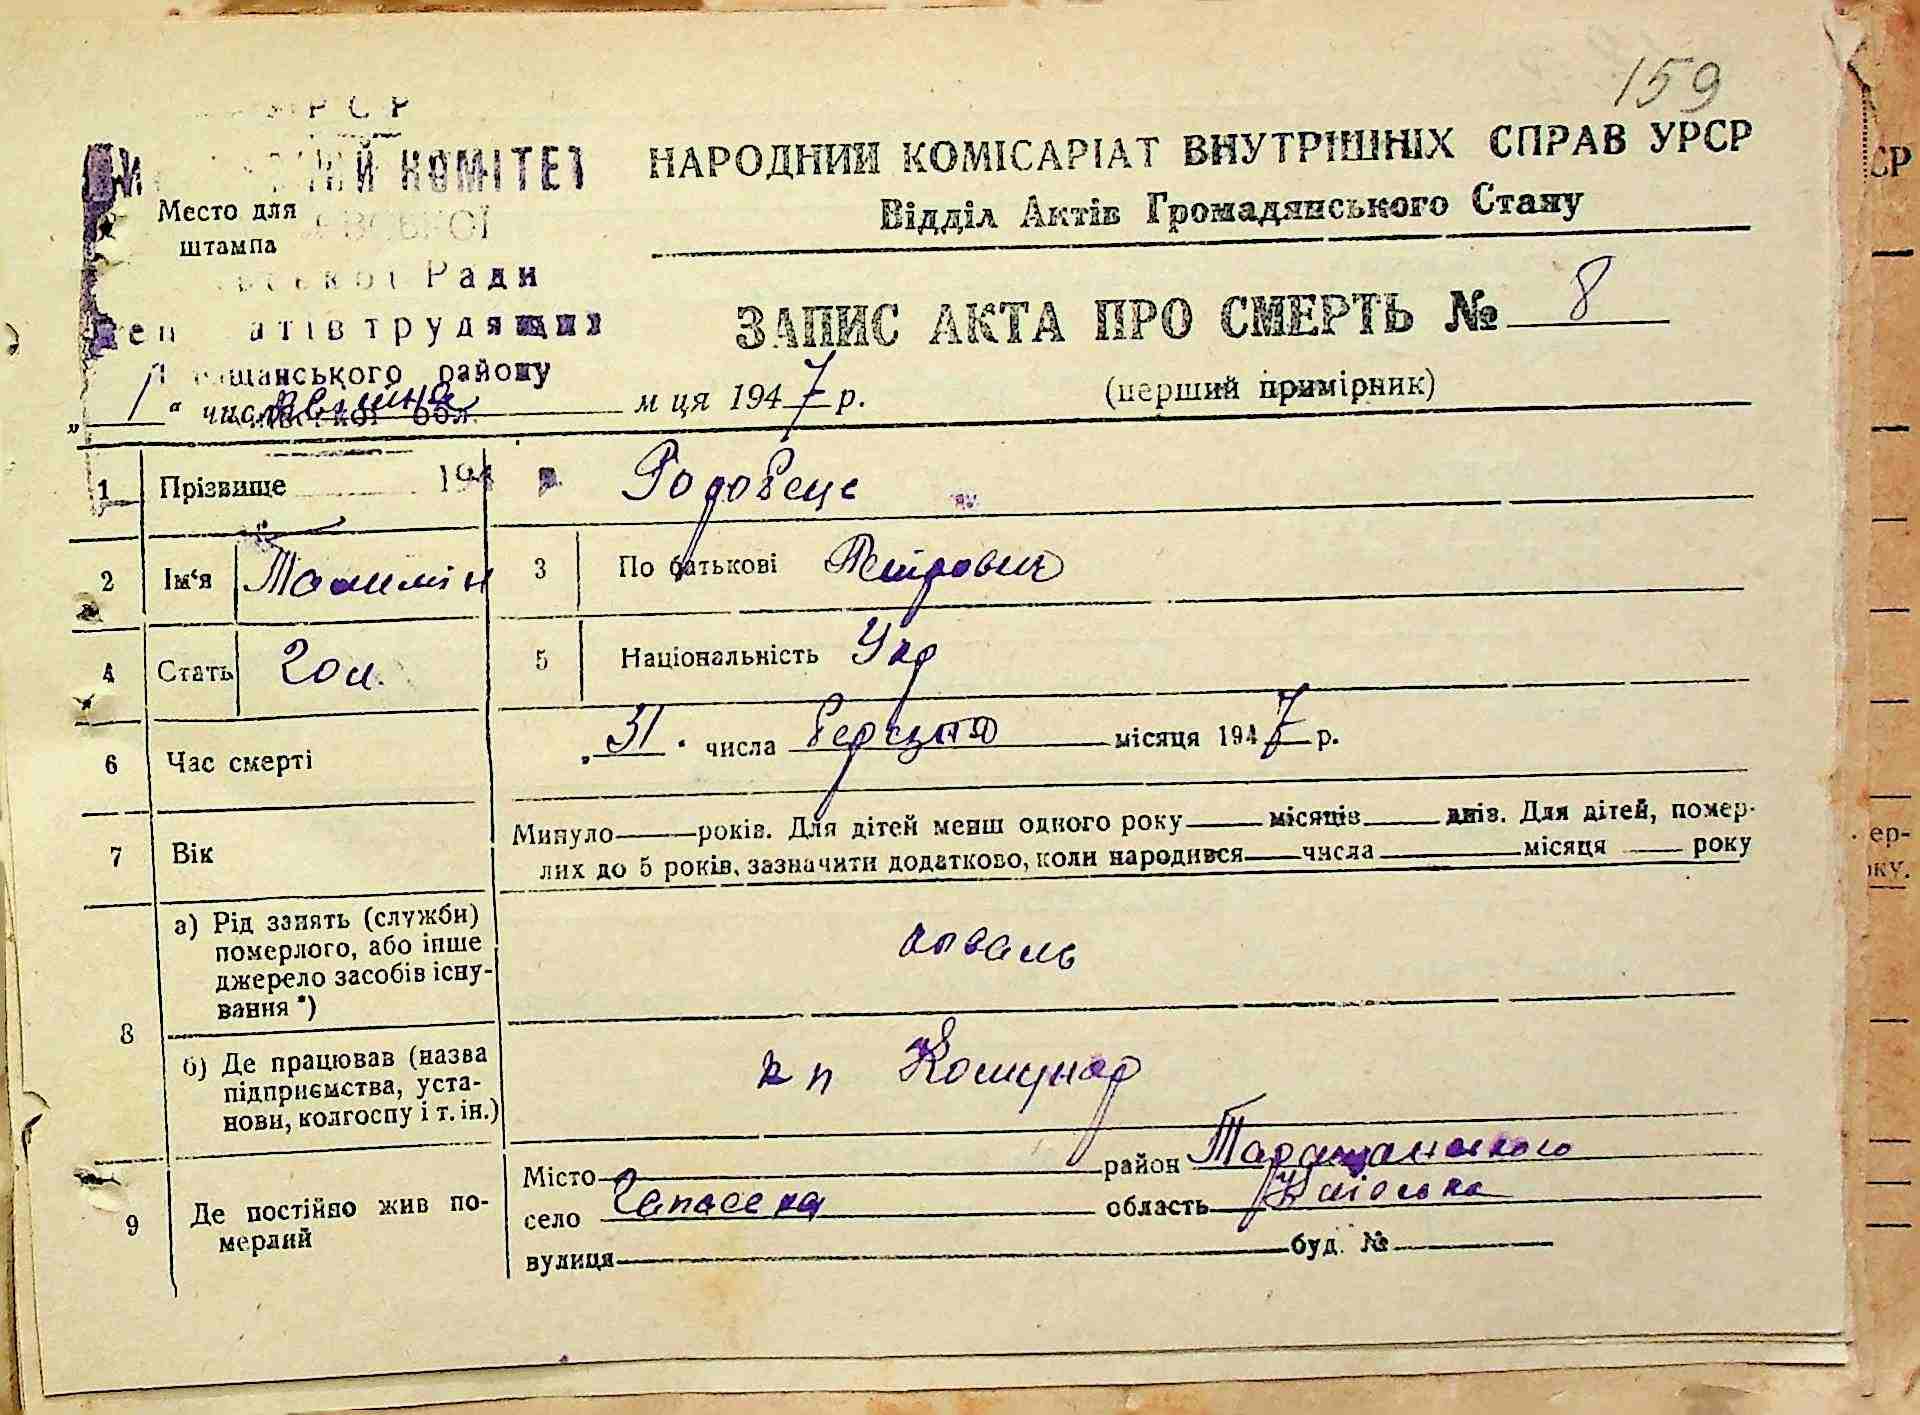 159
РСР
КОМІТЕТ
НАРОДНИЙ КОМІСАРІАТ ВНУТРІШНІХ СПРАВ УРСР
Відділ Актів Громадянського Стану
Место для
штампа
Ради
трудящих
ЗАПИС АКТА ПРО СМЕРТЬ № 8
щанського району
„ 1 “ числа м ця 1947 р.
(перший примірник)
обл.
1 Прізвище 194
2 Ім‘я 3 По батькові Петрович
4 Стать чол. 5 Національність Укр
6 Час смерті „ 31 “ числа березня місяця 1947 р.
7 Вік Минуло років. Для дітей менш одного року місяців днів. Для дітей, помер-
лих до 5 років, зазначити додатково, коли народився числа місяця року
8 а) Рід занять (служби)
померлого, або інше
джерело засобів існу-
вання *)
коваль
б) Де працював (назва
підприємства, уста-
нови, колгоспу і т. ін.)
кп Комунар
9 Де постійно жив по-
мерлий
Місто район Таращанського
село область Київська
вулиця буд. №
СР
ер-
ку.